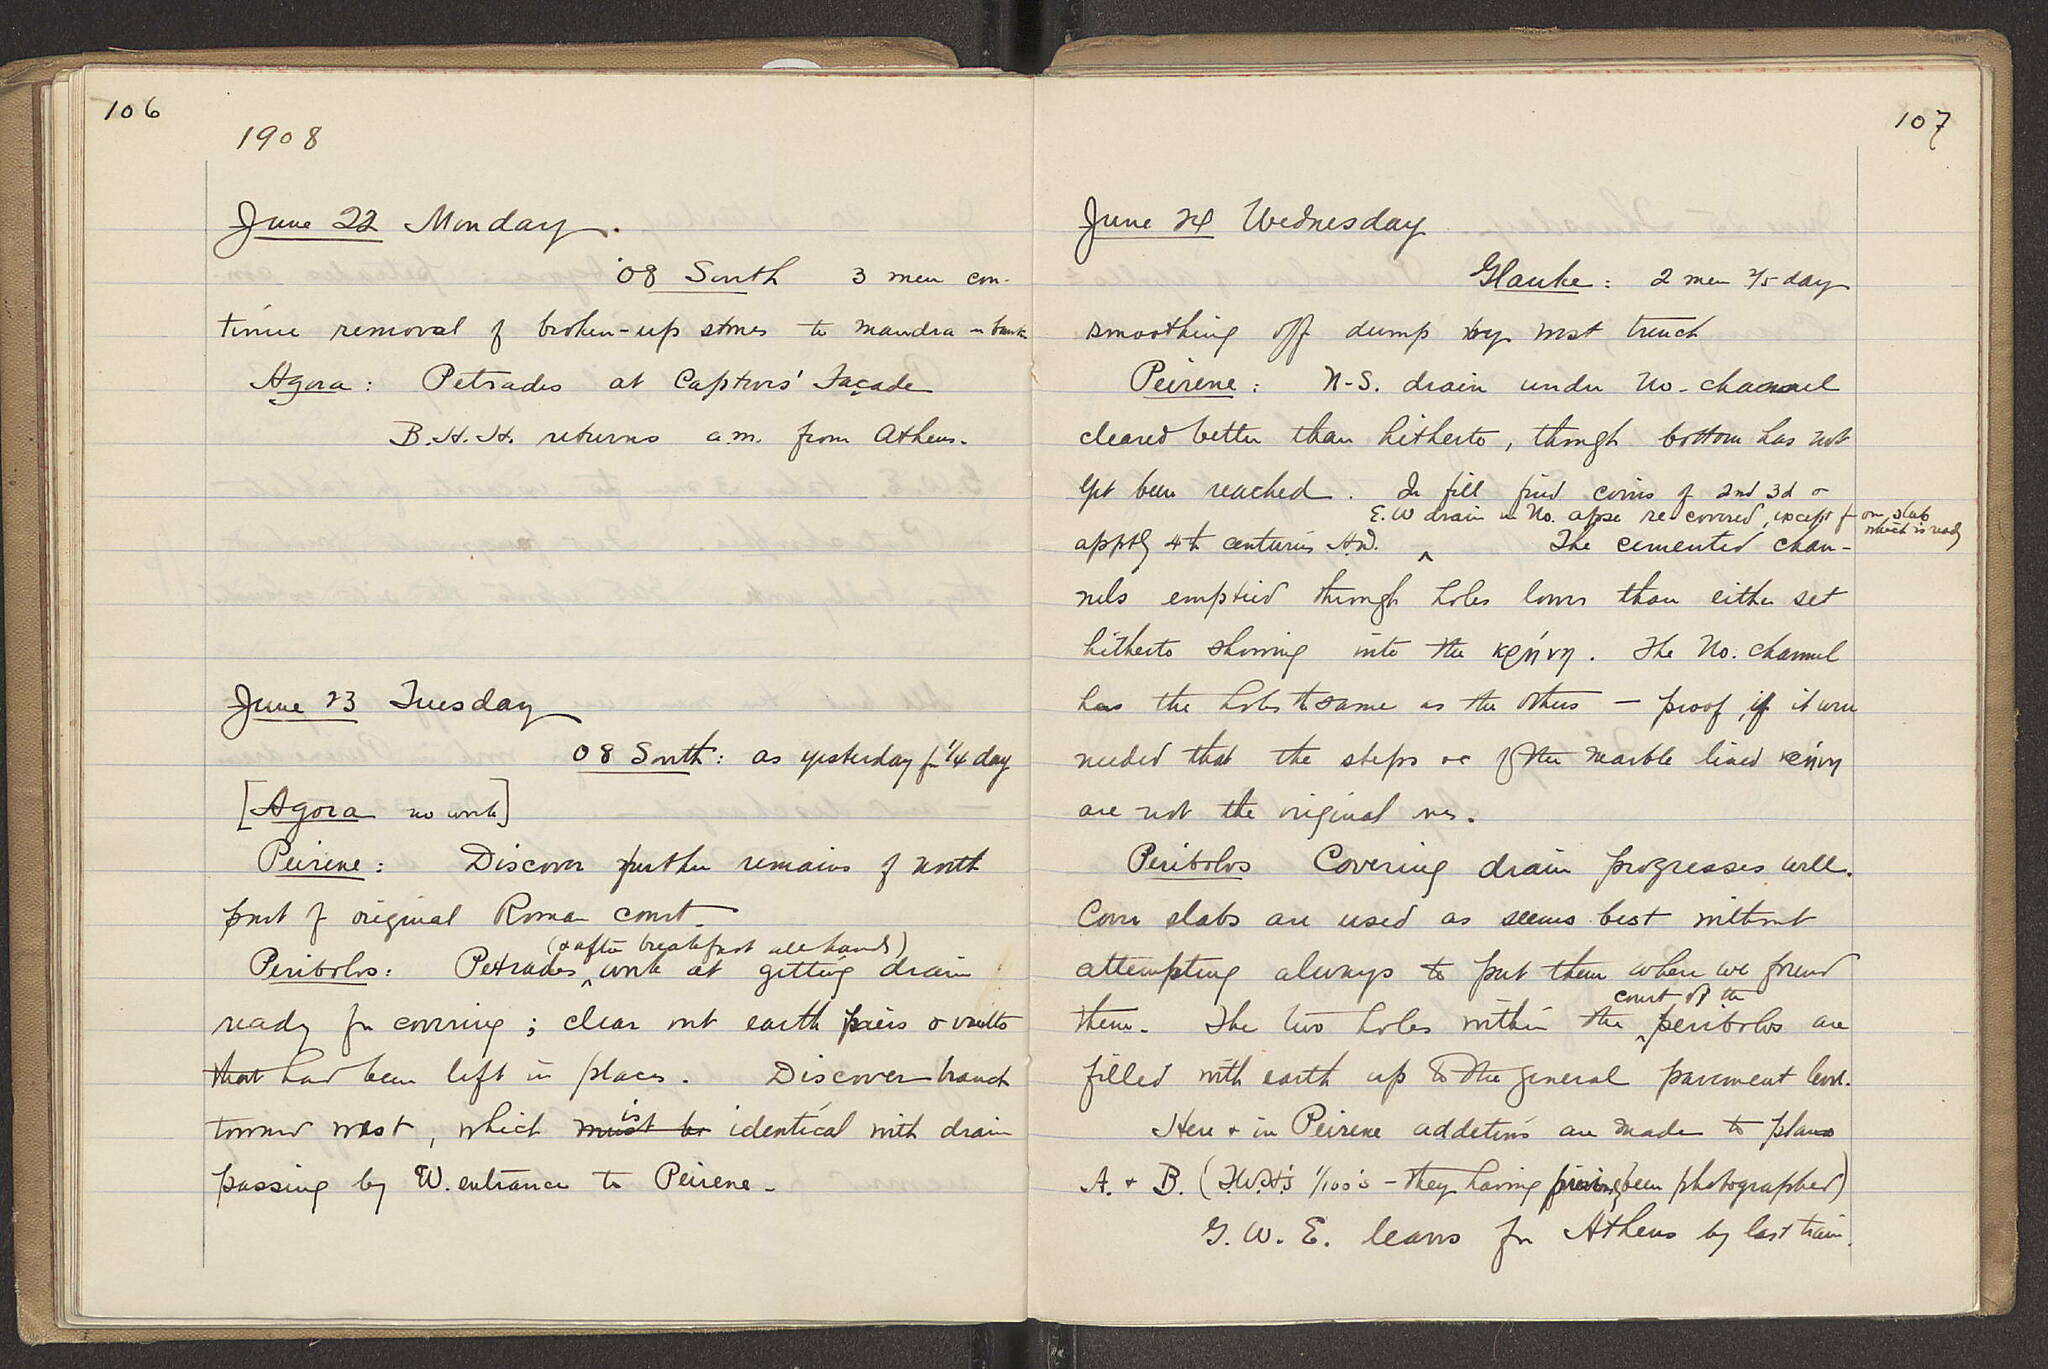 106
1908
June 22 Monday.
'08 South 3 men con-
tinue removal of broken-up stones to mandra - bank
Agora: Petrades at Captives' Façade
B.H.H. returns a.m. from Athens.
June 23 Tuesday
08 South: as yesterday for 1/4 day
[Agora no work]
Peirene: Discover further remains of north
part of original Roman court.
(& after breakfast all hands)
Peribolos: Petrades work at getting drain
ready for covering; clear out earth piers & vaults
that had been left in places. Discover branch
toward west, which must be is identical with drain
passing by W. entrance to Peirene.
107
June 24 Wednesday
Glauke: 2 men 2/5 day
smoothing off dump by west trench
Peirene: N-S. drain under No. channel
cleared better than hitherto, though bottom has not
yet been reached. In fill find coins of 2nd 3d &
E.W drain in No. apse re-covered, except for one slab
which is ready
apptly 4th centuries A.D. The cemented chan-
nels emptied through holes lower than either set
hitherto showing into the κρήνη. The No. channel
has the holes the same as the others — proof, if it were
needed that the steps &c of the marble lined κρήνη
are not the original ones.
Peribolos Covering drain progresses well.
Cover slabs are used as seems best without
attempting always to put them where we found
court of the
them. The two holes within the peribolos are
filled with earth up to the general pavement level.
Here & in Peirene additions are made to plans
A. & B. (F.W.H.'s 1/100's - they having been photographed)
G. W. E. leaves for Athens by last train.